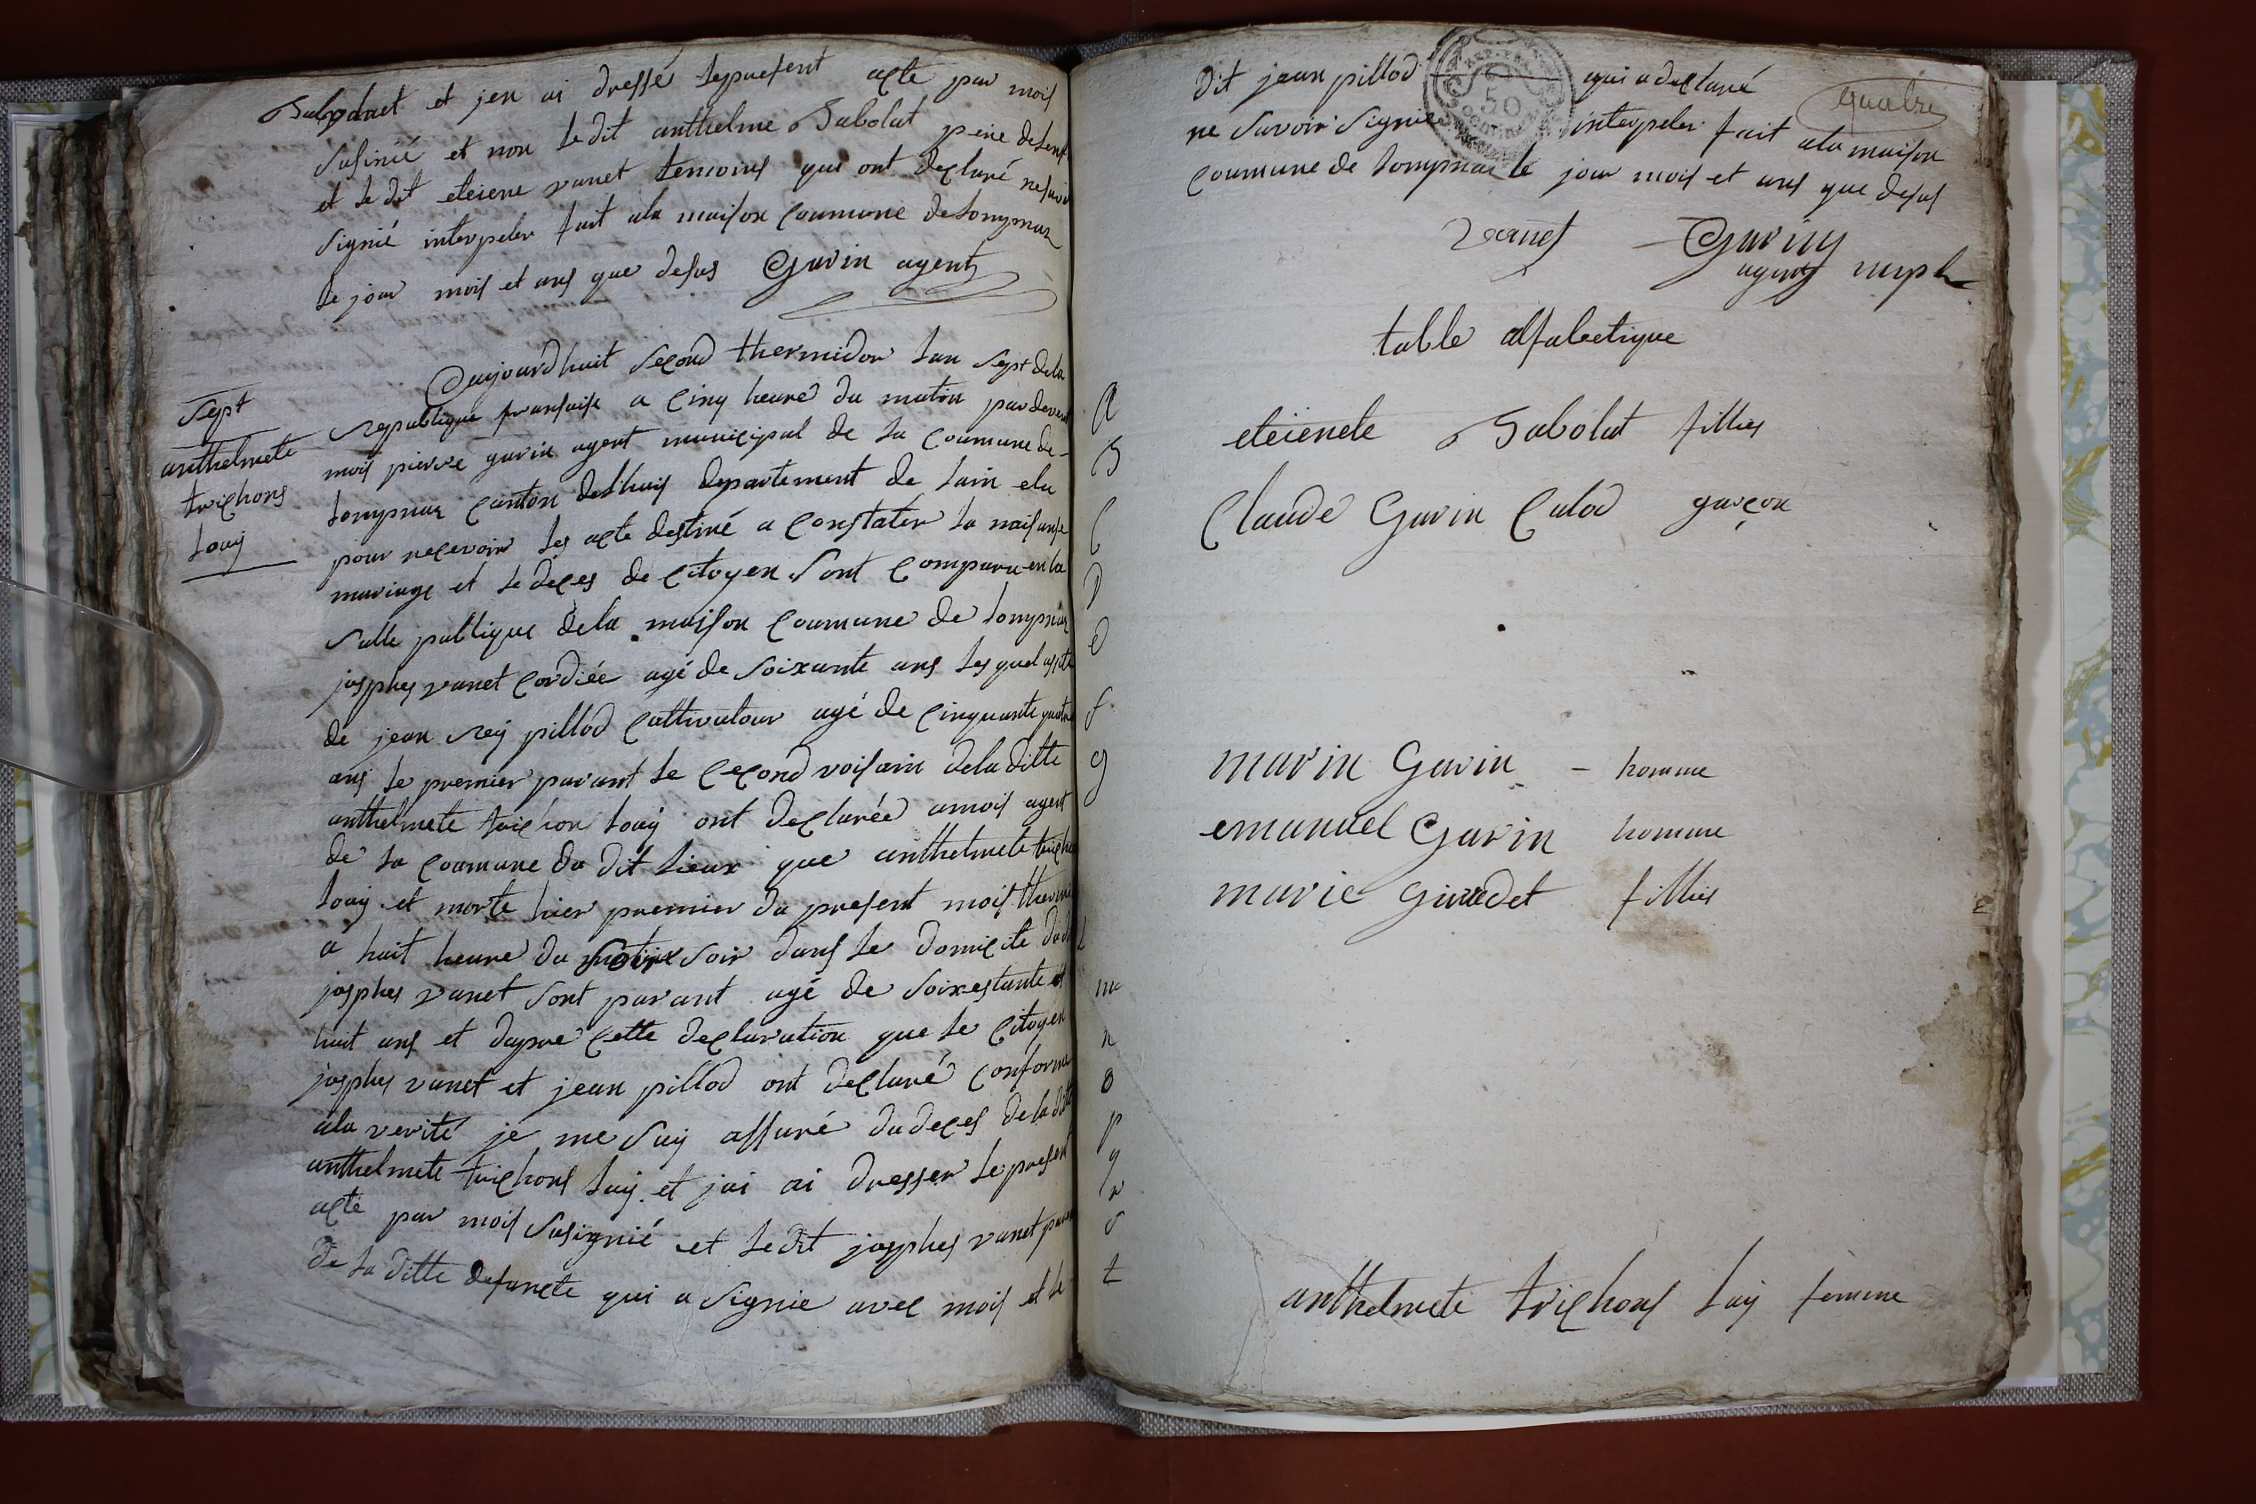 Babolat et jen ai dressé lepresent acte par mois
susinié et non le dit anthelme Babolat pere
et le dit eteiene vanet temoins qui ont declaré
signié interpeler fait ala maison coumune de Lompnaz
le jour mois et ans que desus Gavin agent
Sept
anthelmete
trichons
Louy
aujourdhuit second thermidor lan sept dela
republique fransaise a cinq heure du matin pardevent
mois pierre gavin agent municipal de la coumune de
Lompnaz canton delhuis departement de lain elu
pour recevoir les acte destiné a constater la naisanse
mariage et le deces de citoyen sont comparu en la
salle publique dela maison coumune de Lompnaz
josphes vanet cordiée agé de soixante ans lesquel
de jean rey pillod cultivatour agé de cinquante quatre
ans le premier parant le second voisain dela ditte
anthelmete trichon Louy ont declarée a mois agent
de la coumune du dit Lieux que anthelmete
Louy et morte hier premier du present mois
a huit heure du soir dans le domicile
josphes vanet sont parant agé de soixestante et
huit ans et dapre cette declaration que le citoyen
josphes vanet et jean pillod ont declaré conforme
ala verité je me suy assuré du deces de la
anthelmete trichons Luy et jai ai dresser le present
acte par mois susignié et ledit josphes vanet
de la ditte defuncte qui a signie avec mois et le
dit jean pillod qui a declaré
quatre
ne savoir signier interpeler fait ala maison
coumune de Lompnaz le jour mois et ans que desus
50
vanet Gavin
agent
table alfabetique
A
B eteienete Babolat fillies
C Claude Gavin Calod garçon
D
e
f
g marin Gavin - homme
emanuel Gavin homme
marie Giredet fillies
L
m
n
o
p
q
r
s
t anthelmete trichons Luy femme